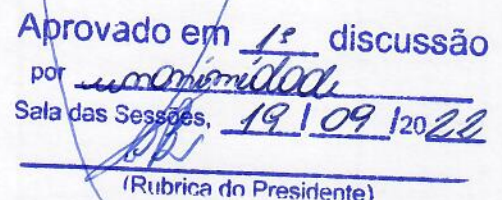 Aprovado em 1ª discussão
por unanimidade
Sala das Sessões, 19 / 09 /2022
(Rubrica do Presidente)